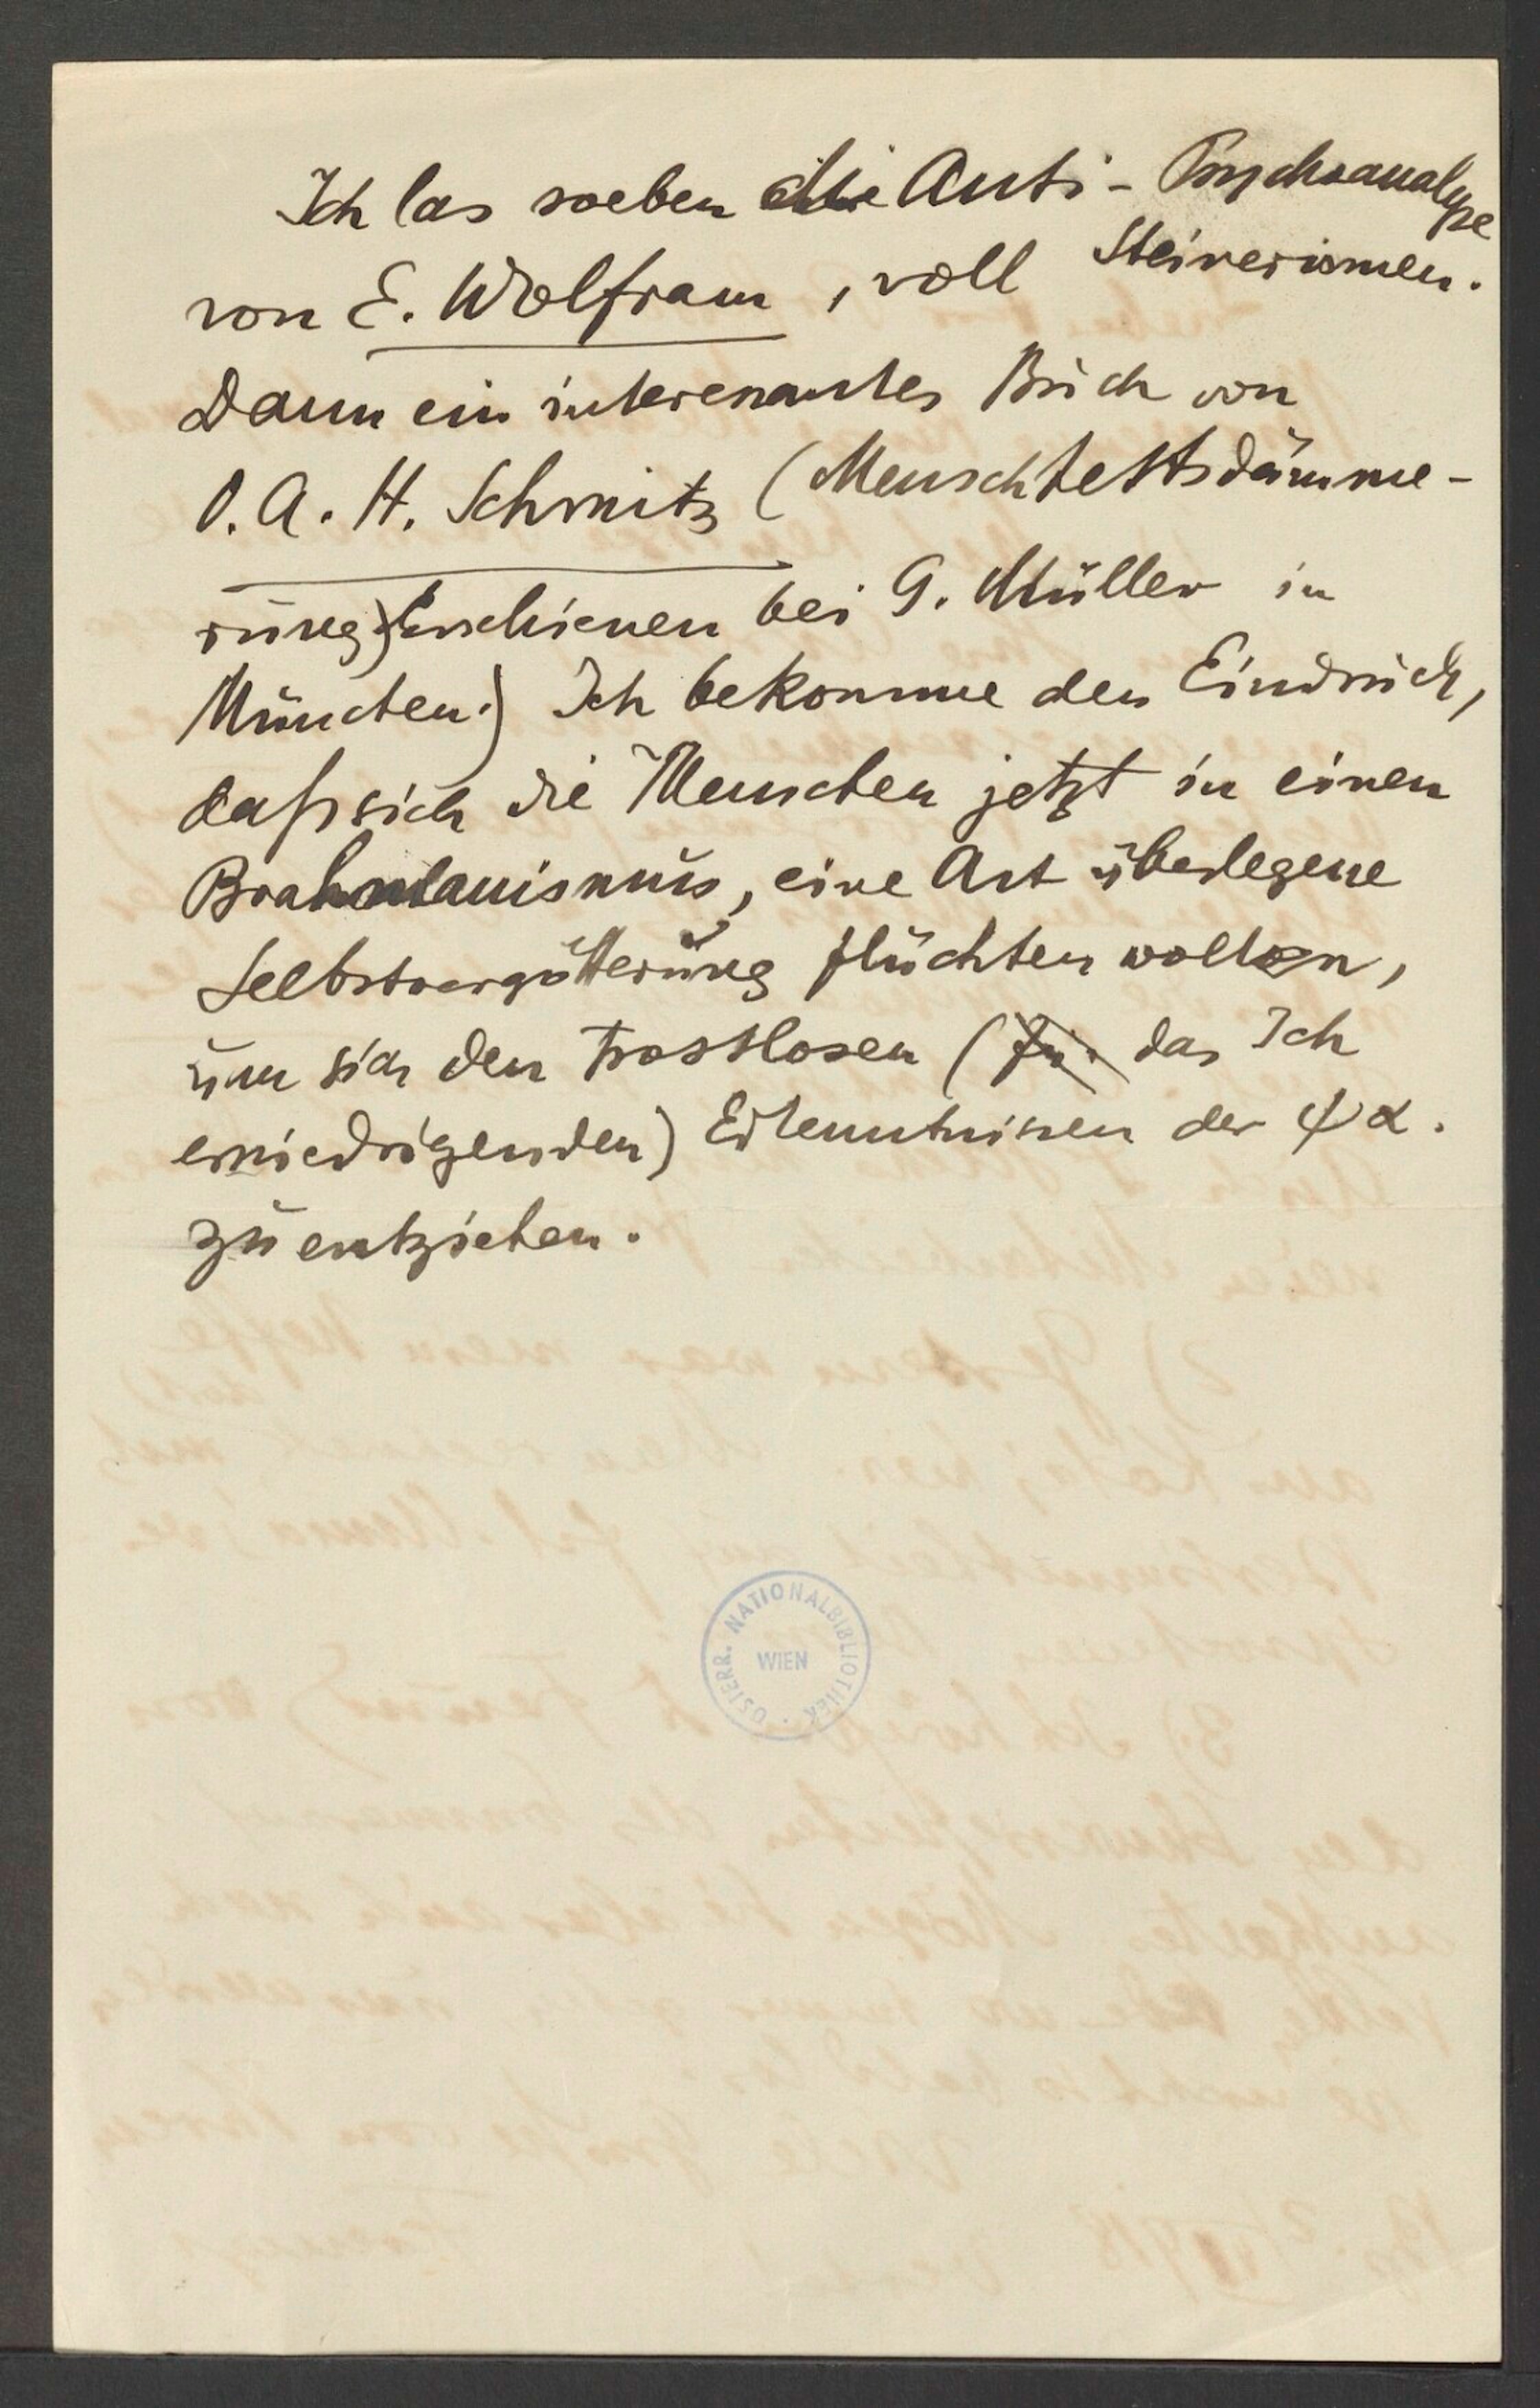 Ich las soeben die Anti-Psychoanalyse
von E. Wolfram, voll Steinerismen.
Dann ein interessantes Buch von
O. A. H. Schmitz (Menschheitsdämme-
rung) Erschienen bei G. Müller in
München.) Ich bekomme den Eindruck,
daß sich die Menschen jetzt in einen
Brahmanismus, eine Art überlegene
Selbstvergötterung flüchten wollen,
um sich den trostlosen (für das Ich
erniedrigenden) Erkenntnissen der ψα.
zu entziehen.
ÖSTERR. NATIONALBIBLIOTHEK · WIEN